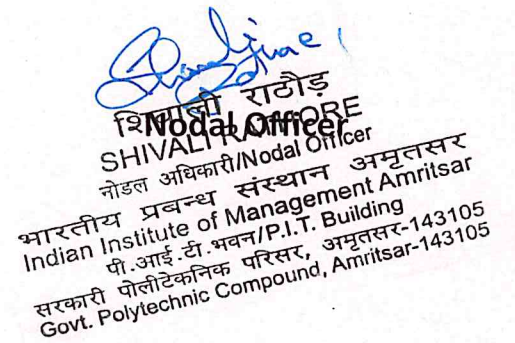 Shivali Rathore
शिवाली राठौड़
Nodal Officer
SHIVALI RATHORE
नोडल अधिकारी/Nodal Officer
भारतीय प्रबन्ध संस्थान अमृतसर
Indian Institute of Management Amritsar
पी.आई.टी.भवन/P.I.T. Building
सरकारी पोलीटेकनिक परिसर, अमृतसर-143105
Govt. Polytechnic Compound, Amritsar-143105